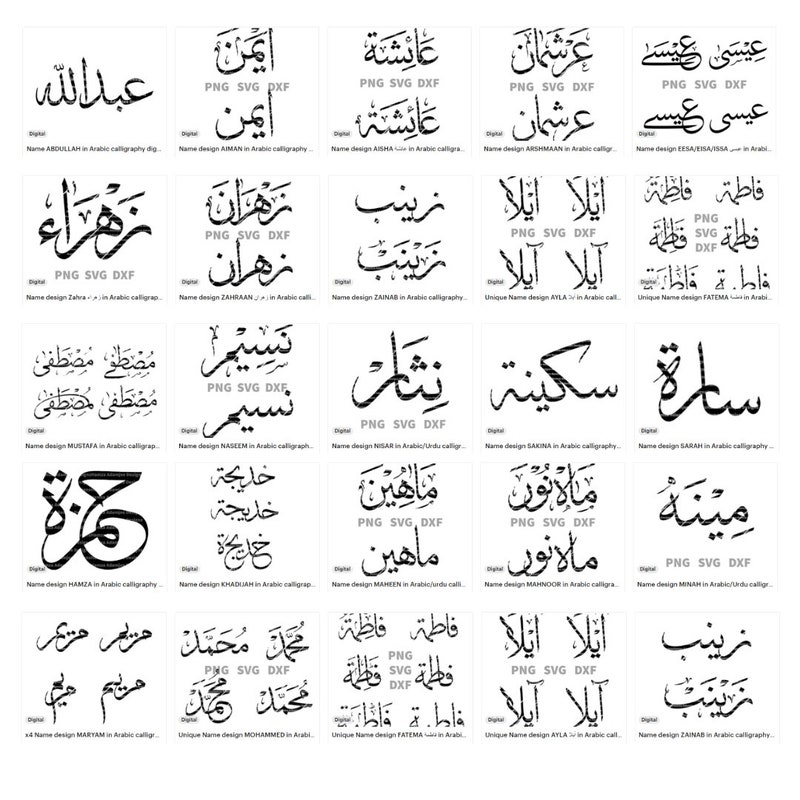 عبدالله
Digital
Name ABDULLAH in Arabic calligraphy dig...
أَيْمَنَ
PNG SVG DXF
أيمن
Digital
Name design AIMAN in Arabic calligraphy ...
عَائِشَة
PNG SVG DXF
عَائِشَة
Digital
Name design AISHA عائشة in Arabic calligra...
عَرْشمَان
PNG SVG DXF
عرشمان
Digital
Name design ARSHMAAN in Arabic calligr...
عِيْسَى عِيْسے
PNG SVG DXF
عيسى عيسے
Digital
Name design EESA/EISA/ISSA عيسى in Arabi...
زَهْرَاء
PNG SVG DXF
Digital
Name design Zahra زهراء in Arabic calligrap...
زَهْرَان
PNG SVG DXF
زهران
Digital
Name design ZAHRAAN زهران in Arabic calli...
زينب
زَيْنَبْ
Digital
Name design ZAINAB in Arabic calligraphy...
أيْلَا أيْلَا
PNG SVG DXF
آيلا آيلا
Digital
Unique Name design AYLA آيلا in Arabic call...
فاطمة فَاطِمَة
PNG
SVG
DXF
فاطمة فَاطِمَة
فاطمة فَاطِمَة
Digital
Unique Name design FATEMA فاطمة in Arabi...
مُصْطَفى مُصْطَفى
مُصْطَفى مُصْطَفى
Digital
Name design MUSTAFA in Arabic calligrap...
نَسِيْم
PNG SVG DXF
نسيم
Digital
Name design NASEEM in Arabic calligraph...
نِثَار
PNG SVG DXF
Digital
Name design NISAR in Arabic/Urdu calligr...
سكينة
Digital
Name design SAKINA in Arabic calligraphy...
سارة
Digital
Name design SARAH in Arabic calligraphy ...
حمزة
Digital
Name design HAMZA in Arabic calligraphy ...
خديجة
خديجة
خديجة
Digital
Name design KHADIJAH in Arabic calligrap...
مَاهِيْن
PNG SVG DXF
ماهين
Digital
Name design MAHEEN in Arabic/urdu calli...
مَاْلاَنُوْر
PNG SVG DXF
مالانور
Digital
Name design MAHNOOR in Arabic calligra...
مِيْنَهْ
PNG SVG DXF
Digital
Name design MINAH in Arabic/Urdu calligr...
مريم مريم
مريم مريم
Digital
x4 Name design MARYAM in Arabic calligr...
مُحَمَّد مُحَمَّد
PNG SVG DXF
مُحَمَّد مُحَمَّد
Digital
Unique Name design MOHAMMED in Arabi...
فاطمة فَاطِمَة
PNG
SVG
DXF
فاطمة فَاطِمَة
فاطمة فَاطِمَة
Digital
Unique Name design FATEMA فاطمة in Arabi...
أيْلَا أيْلَا
PNG SVG DXF
آيلا آيلا
Digital
Unique Name design AYLA آيلا in Arabic call...
زينب
زَيْنَبْ
Digital
Name design ZAINAB in Arabic calligraphy...